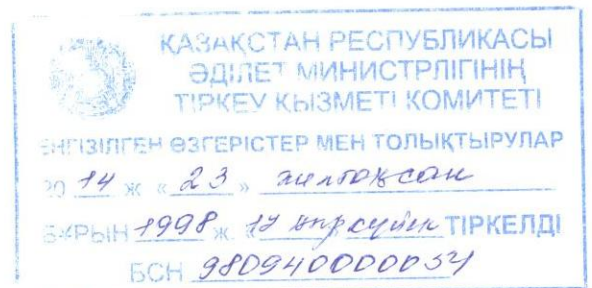 ҚАЗАҚСТАН РЕСПУБЛИКАСЫ
ӘДІЛЕТ МИНИСТРЛІГІНІҢ
ТІРКЕУ ҚЫЗМЕТІ КОМИТЕТІ
ЕНГІЗІЛГЕН ӨЗГЕРІСТЕР МЕН ТОЛЫҚТЫРУЛАР
20 14 ж « 23 » желтоқсан
БҰРЫН 1998 ж. 17 қыркүйек ТІРКЕЛДІ
БСН 980940000054